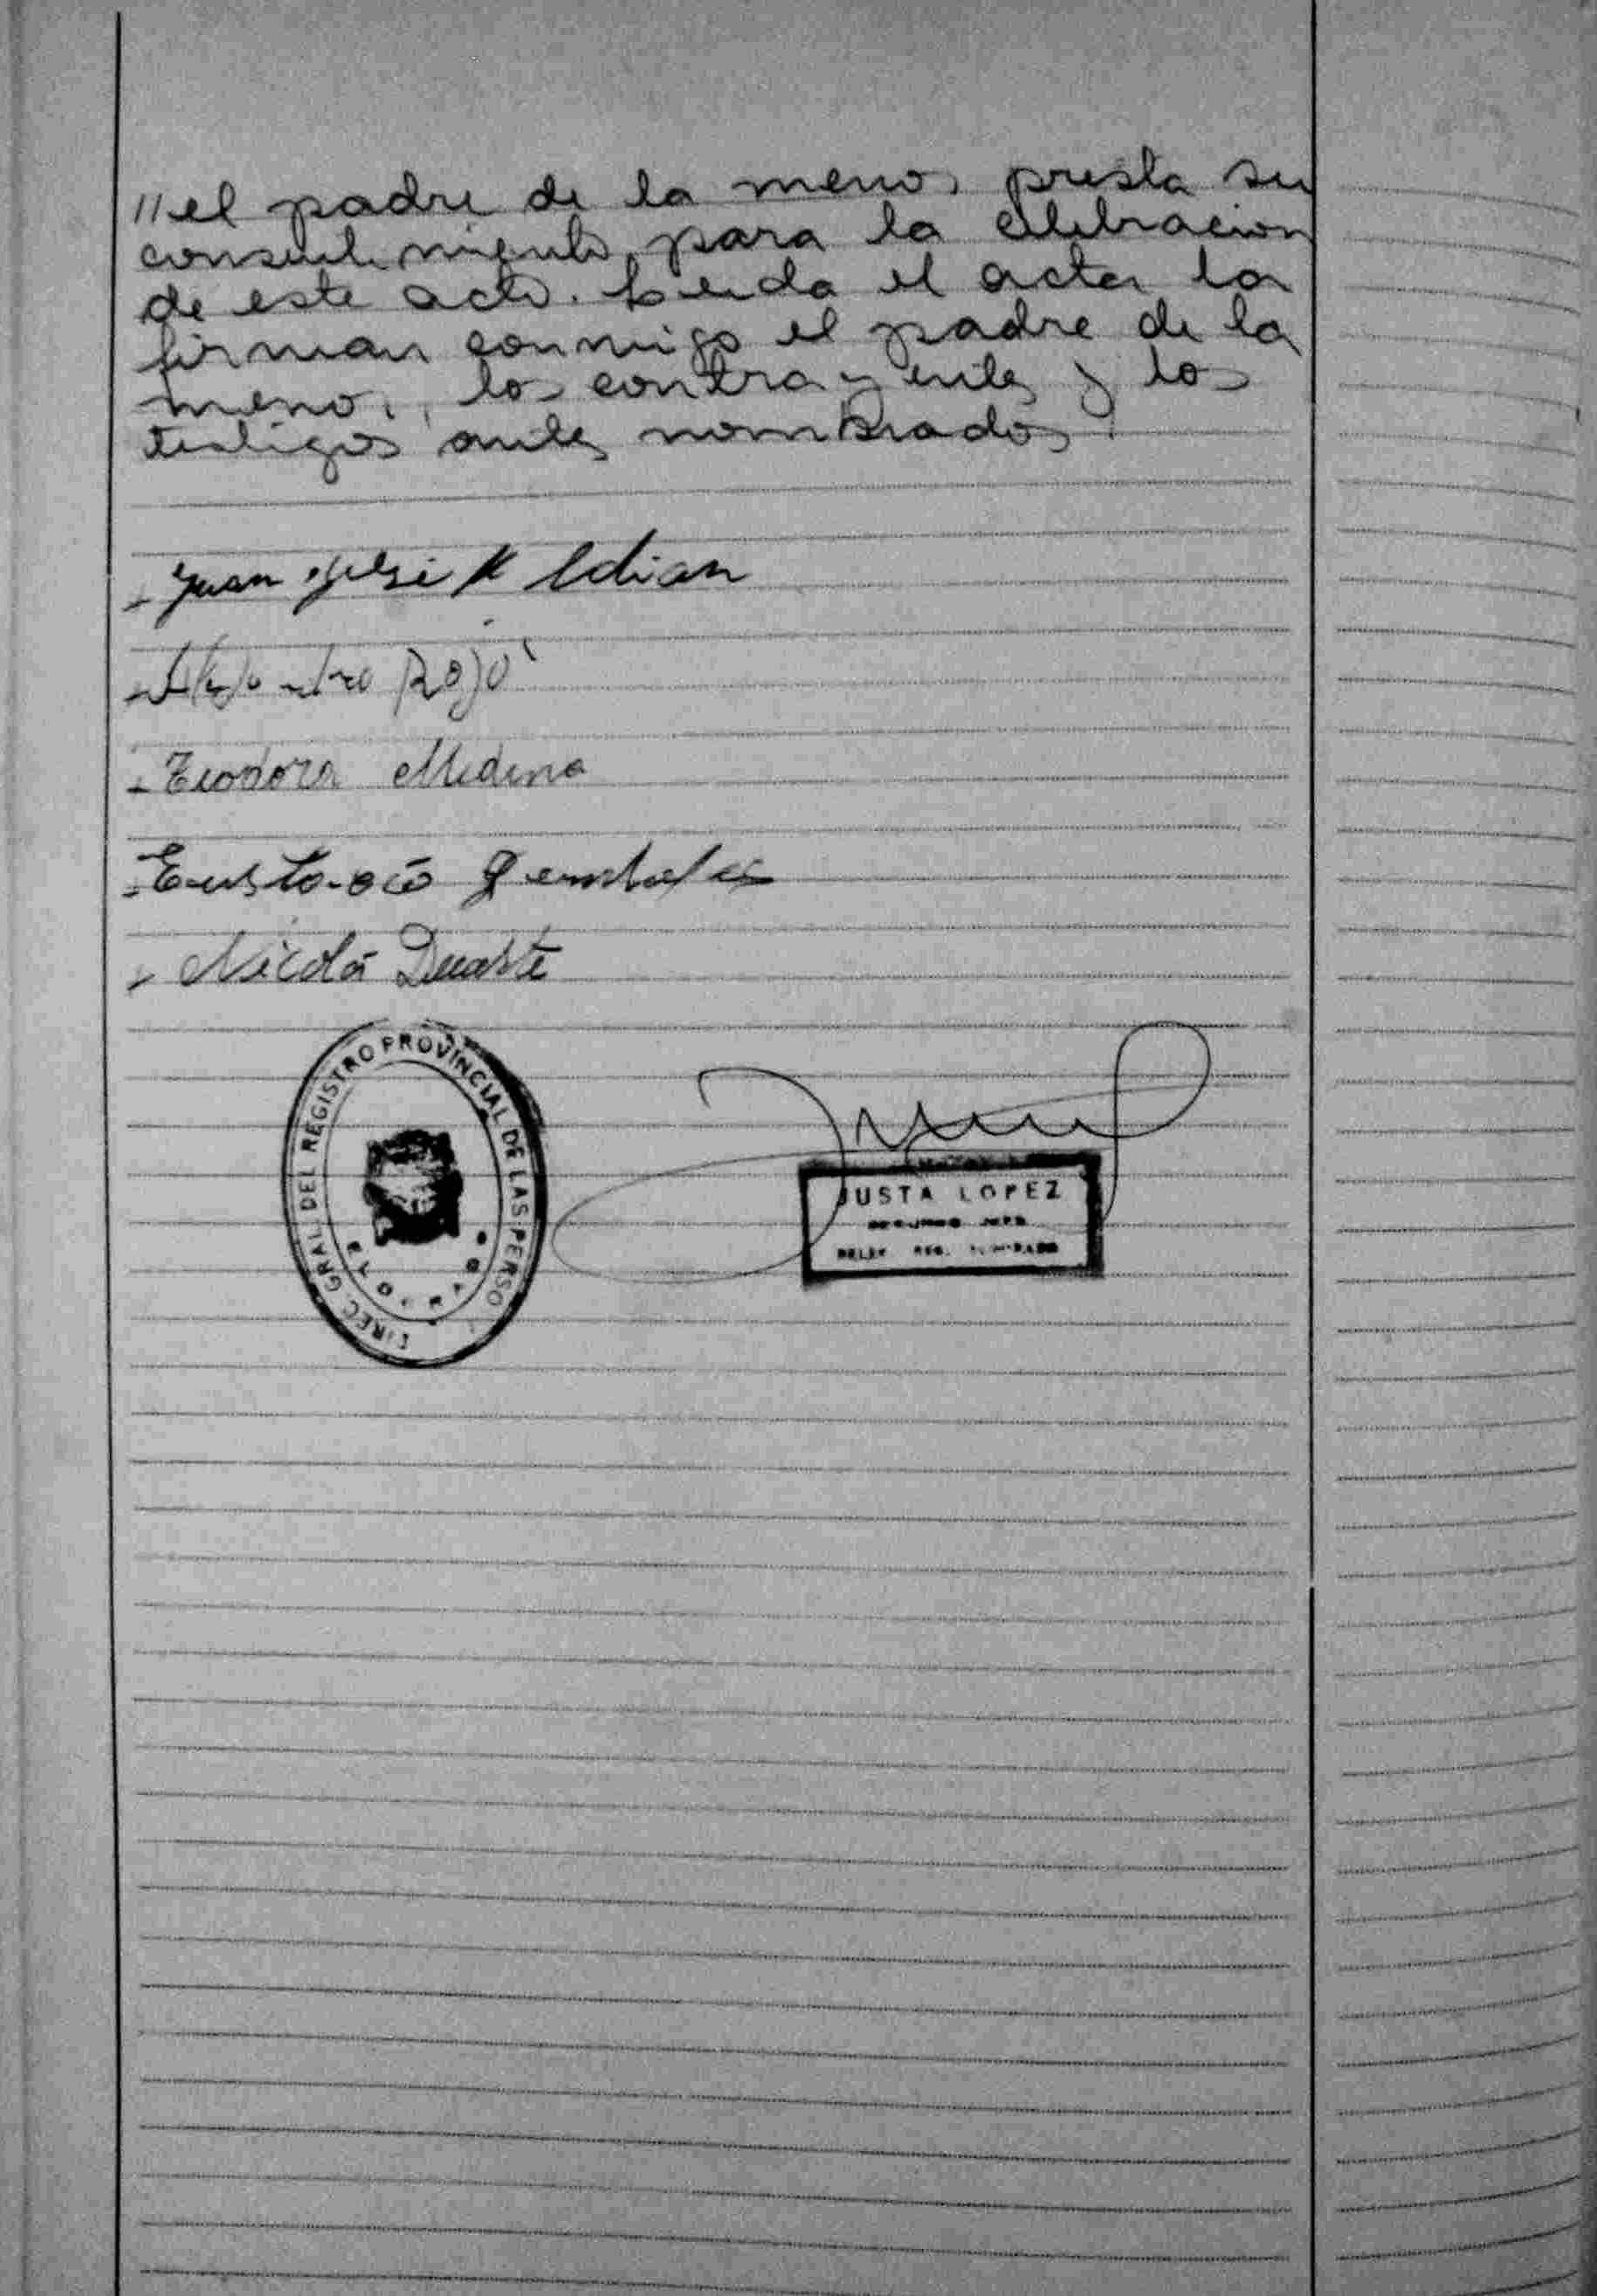 //el padre de la menor presta su
consentimiento para la celebracion
de este acto. Leida el acta la
firman conmigo el padre de la
menor, los contrayentes y los
testigos antes nombrados.
Juan
Rojo
Teodora Medina
Eustacio
Nicolá Duarte
DIREC. GRAL DEL REGISTRO PROVINCIAL DE LAS PERSO
ELDORADO
JUSTA LOPEZ